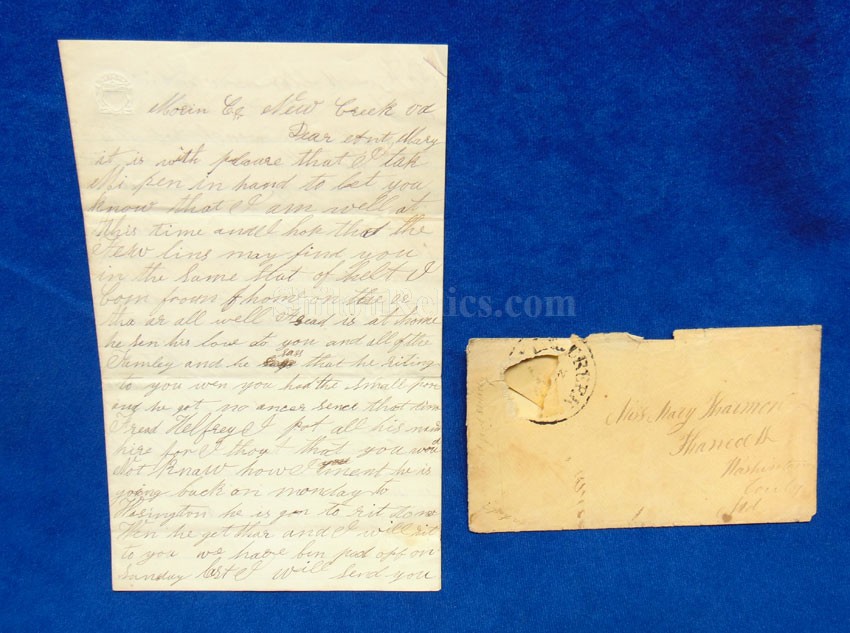 Morin Co, New Creek va
Dear Ant, Mary
it is with pleaure that I tak
Mi pen in hand to let you
know that I am well at
this time and I hok that the
Few lins may find you
in the Same stat of helt I
Com froum f hom on the
tha ar all well Fread is at home
he sen his love do you and all of the
Famley and he sass that he riting
to you wen you had the small pox
and he got no ancer sence that dim
Fread Helfrey I pot all his name
here for I thout that you wood
Not knaw howe I ment he is
going back on monday to
Wasington he is gon to rit to me
Wen he get thar and I will rit
to you we have bin pad off on
Sunday last I will send you
Relics.com
Miss Mary
Washington
County
Md